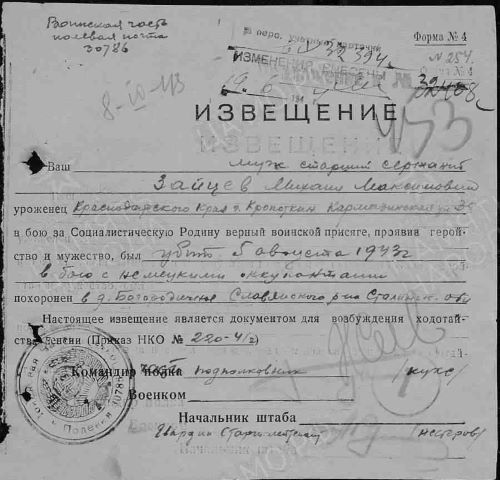 Воинская часть
полевая почта
30786
Форма № 4
№ 254
32394
ИЗМЕНЕНИЯ ВНЕСЕНЫ
8-IX-43
ИЗВЕЩЕНИЕ
453
Ваш муж старший сержант
Зайцев Михаил Максимович
уроженец Краснодарского Края г. Кропоткин
в бою за Социалистическую Родину верный воинской присяге, проявив герой-
ство и мужество, был убит 5 августа 1943 г
в бою с немецкими оккупантами
похоронен в д. Богородичное Славянского р-на Сталинск. обл
Настоящее извещение является документом для возбуждения ходотай-
ства пенсии (Приказ НКО № 220-41 г)
Командир полка подполковник /Кукс/
Военком
Начальник штаба
Гвардии Старш. лейтенант /Нестеров/